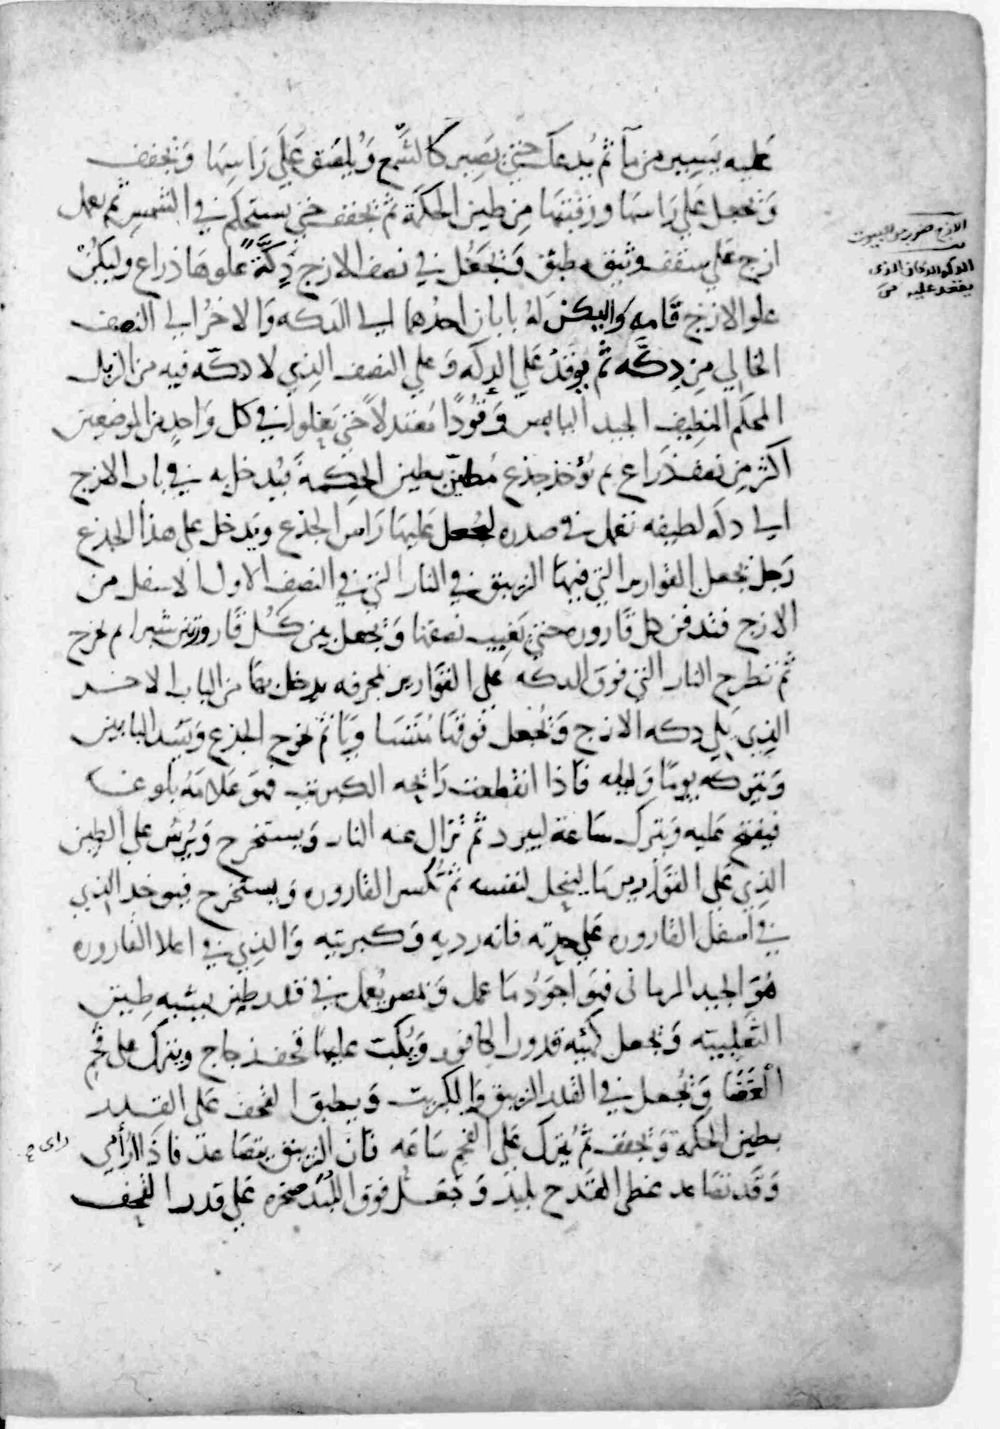 عليه يسير من مآ ثم يدعك حتي يصير كالشمع ويلصق علي راسها وتجفف
وتجعل علي راسها ورقبتها من طين الحكمة ثم تجفف حتي يستحكم في الشمس ثم يعمل
ازج علي سقف وثيق مطبق وتجعل في نصف الازج دكّة علوها ذراع وليكن
علو الازج قامه وليكن له بابان احدهما الي الدكه والاخر الي النصف
الخالي من دكّه ثم يوقد علي الدكه وعلي النصف الذي لا دكّه فيه من الزبل
المحكم النظيف الجيد اليابس وقودًا معتدلاً حتي يعلوا في كل واحد من الموضعين
اكثر من نصف ذراع ثم يؤخذ جذع مطيّن بطين الحكمة فيدخل به في باب الازج
الي دكه لطيفه تعمل في صدره ليجعل عليها راس الجذع ويدخل علي هذا الجذع
رجل تجعل القوارير التي فيها الزيبق في النار التي في النصف الاول الاسفل من
الازج فتدفن كل قاروره حتي يغيب نصفها وتجعل بين كل قارورتين شبرا ثم يخرج
ثم تطرح النار التي فوق الدكه علي القوارير بمجرفه يدخل بها من الباب الاخر
الذي يلي دكه الازج وتجعل فوقها متسا ويا ثم يخرج الجذع ويسد البابين
وتتركه يومًا وليله فاذا انقطعت رائحه الكبريت فهو علامة بلوغه
فيفتح عليه ويترك ساعة ليبرد ثم تزال عنه النار ويستخرج ويرش علي الطين
الذي علي القوارير ما لينحل لنفسه ثم تكسر القاروره ويستخرج فيوخذ الذي
في اسفل القاروره علي حدته فانه رديه وكبريتيه والذي في اعلا القاروره
هو الجيد الرماني فهو اجود ما عمل وبمصر يعمل في قدر طين يشبه طين
الثعلبيته وتجعل كهيئه قدور الكافور ويكبت عليها قحف زجاج ويترك علي فحم
الغضا وتجعل في القدر الزيبق والكبريت ويطبق القحف علي القدر
بطين الحكمة وتجفف ثم يترك علي الفحم ساعه فان الزيبق يتصاعد فاذا رأي
راي صح
وقد تصاعد غطي القدح بلبد وتجعل فوق اللبد صخره علي قدر القحف
الازج صوره من البيوت
الدكه الدكان الذي
يقعد عليه